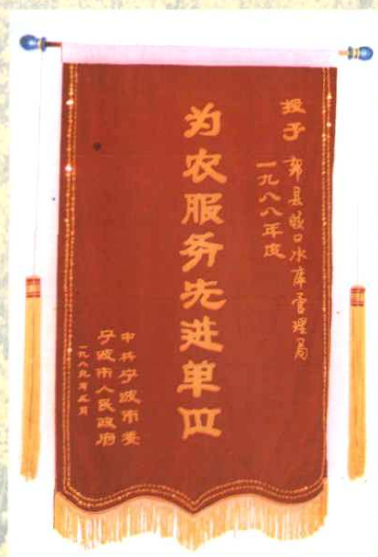 授予 鄞县皎口水库管理局
一九八八年度
为农服务先进单位
中共宁波市委
宁波市人民政府
一九八九年月